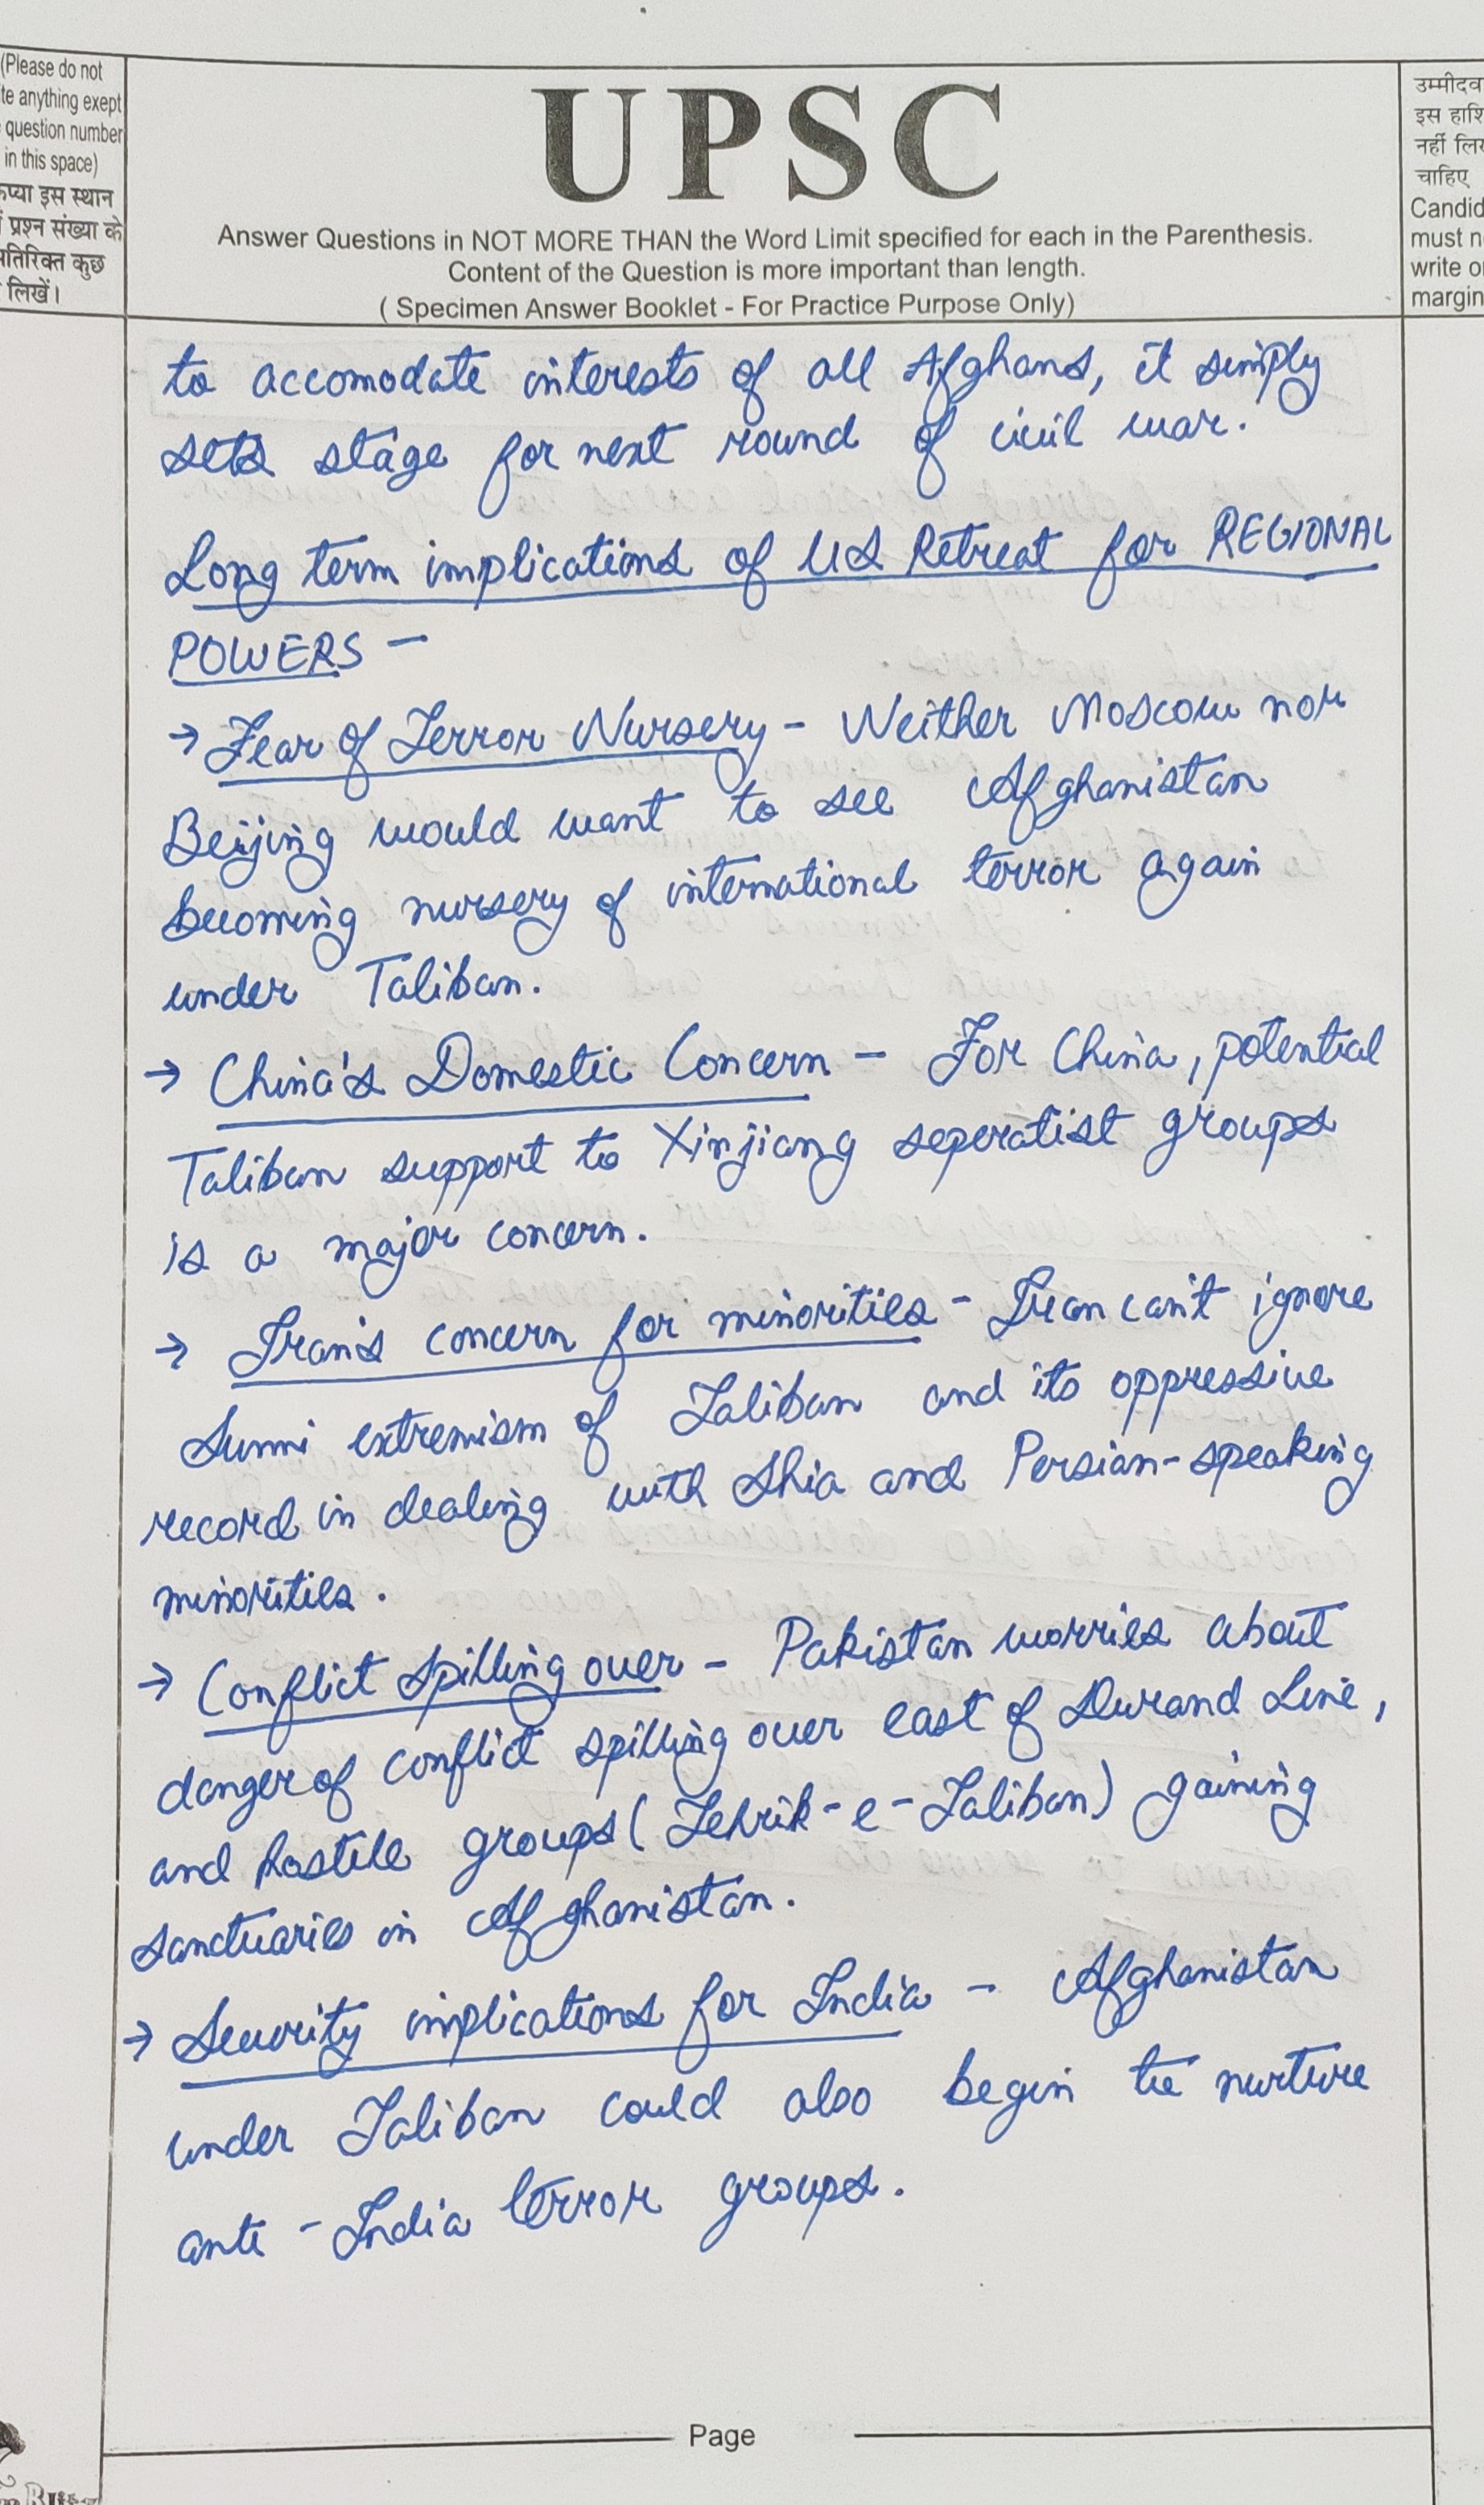 (Please do not
te anything exept
question number
in this space)
कृप्या इस स्थान
में प्रश्न संख्या के
अतिरिक्त कुछ
लिखें।
UPSC
Answer Questions in NOT MORE THAN the Word Limit specified for each in the Parenthesis.
Content of the Question is more important than length.
( Specimen Answer Booklet - For Practice Purpose Only)
उम्मीदव
इस हाशि
नहीं लिख
चाहिए
Candid
must n
write o
margin
to accomodate interests of all Afghans, it simply
sets stage for next round of civil war.
Long term implications of US Retreat for REGIONAL
POWERS -
→ Fear of Terror Nursery - Neither Moscow nor
Beijing would want to see Afghanistan
becoming nursery of international terror again
under Taliban.
→ China's Domestic Concern - For China, potential
Taliban support to Xinjiang seperatist groups
is a major concern.
→ Iran's concern for minorities - Iran can't ignore
Sunni extremism of Taliban and its oppressive
record in dealing with Shia and Persian-speaking
minorities.
→ Conflict Spilling over - Pakistan worries about
danger of conflict spilling over east of Durand Line,
and hostile groups (Tehrik-e-Taliban) gaining
sanctuaries in Afghanistan.
→ Security implications for India - Afghanistan
under Taliban could also begin to nurture
anti-India terror groups.
Page